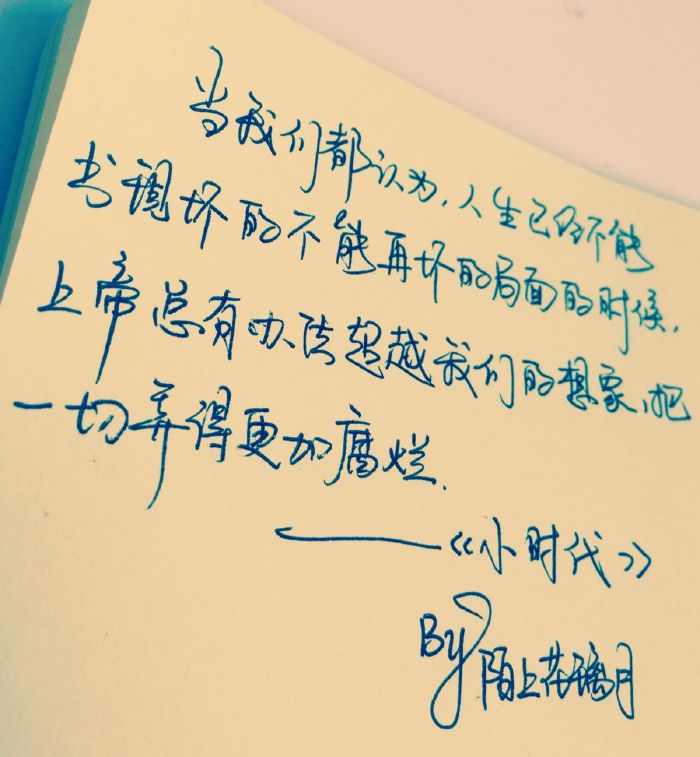 当我们都认为,人生已经不能
出现坏的不能再坏的局面的时候,
上帝总有办法超越我们的想象,把
一切弄得更加腐烂.
——《小时代》
By 陌上花璃月